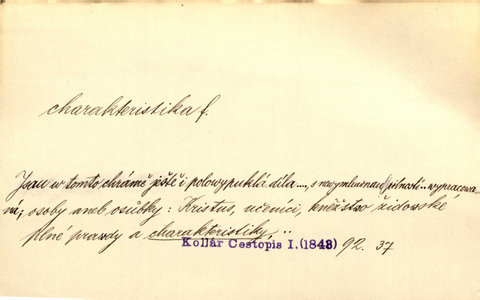 charakteristika f.
Jsau w tomto chrámě ještě i polowypuklá díla...., s newymluwnau pilností.. wypracowa-
ná; osoby aneb osůbky: Kristus, učeníci, kněžstwo židowské
plné prawdy a charakteristiky...
Kollár Cestopis I.(1843) 92. 37